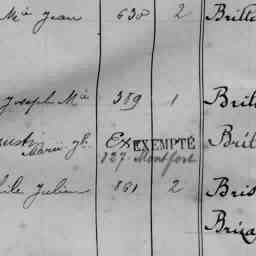 Mie Jean 630 2 Brill
Joseph Mie 389 1 Bril
Marie Jh. Ex EXEMPTÉ Bril
127 Montfort
Julien 861 2 Bris
Briza